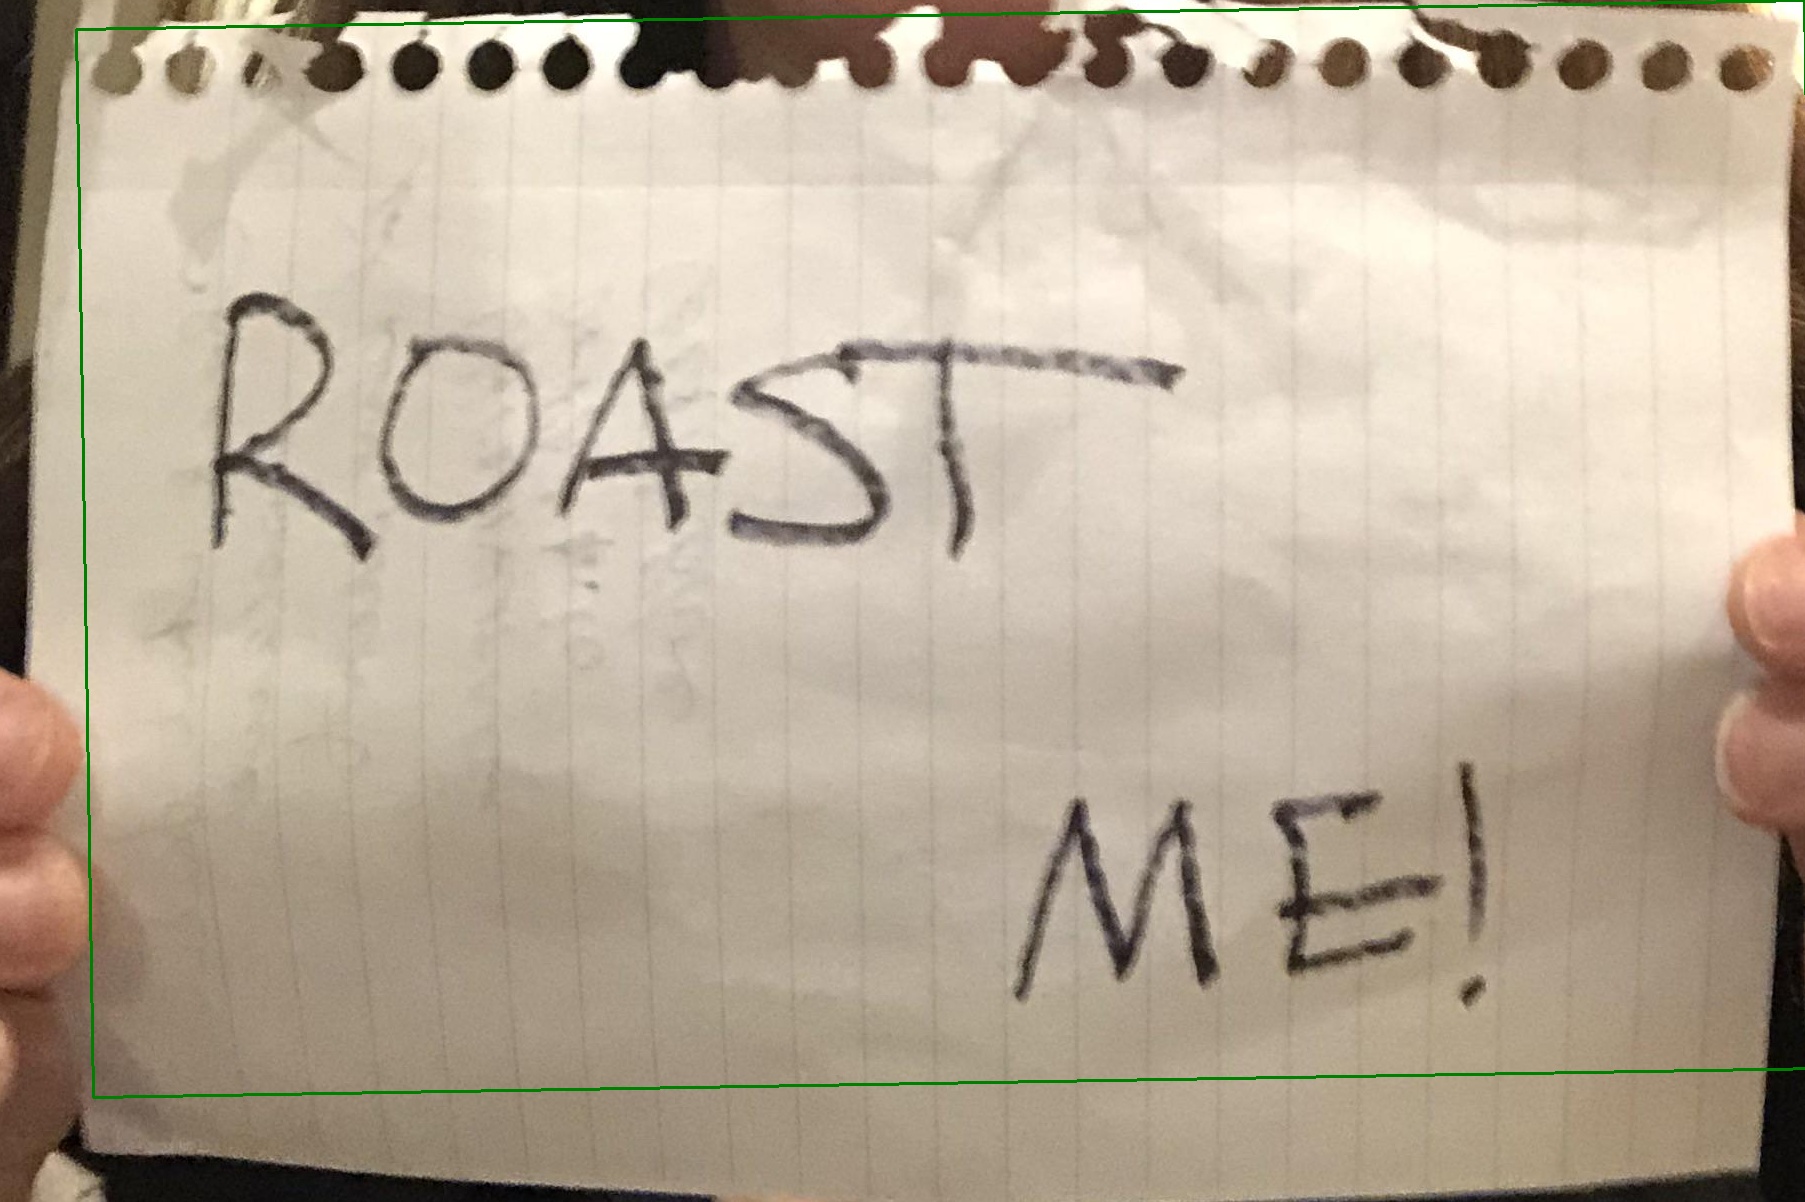 ROAST
ME!